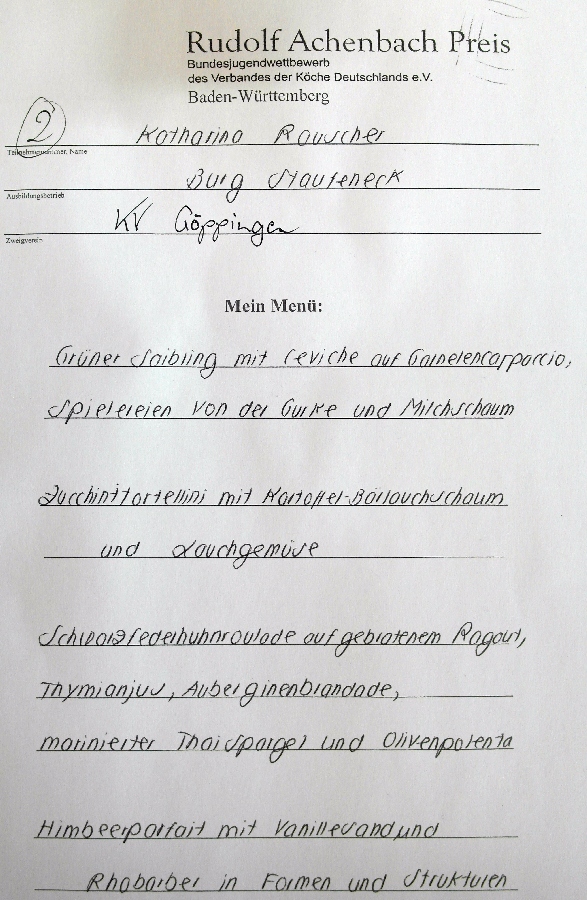 Rudolf Achenbach Preis
Bundesjugendwettbewerb
des Verbandes der Köche Deutschlands e.V.
Baden-Württemberg
2 Katharina Rauscher
Teilnehmernummer, Name
Burg Staufeneck
Ausbildungsbetrieb
KV Göppingen
Zweigverein
Mein Menü:
Grüner Saibling mit Ceviche auf Garnelencarpaccio,
Spielereien von der Gurke und Milchschaum
Zucchinitortellini mit Kartoffel-Bärlauchschaum
und Lauchgemüse
Schwarzfederhuhnroulade auf gebratenem Ragout,
Thymianjus, Auberginenbrandade,
marinierter Thaispargel und Olivenpolenta
Himbeerparfait mit Vanillesand und
Rhabarber in Formen und Strukturen